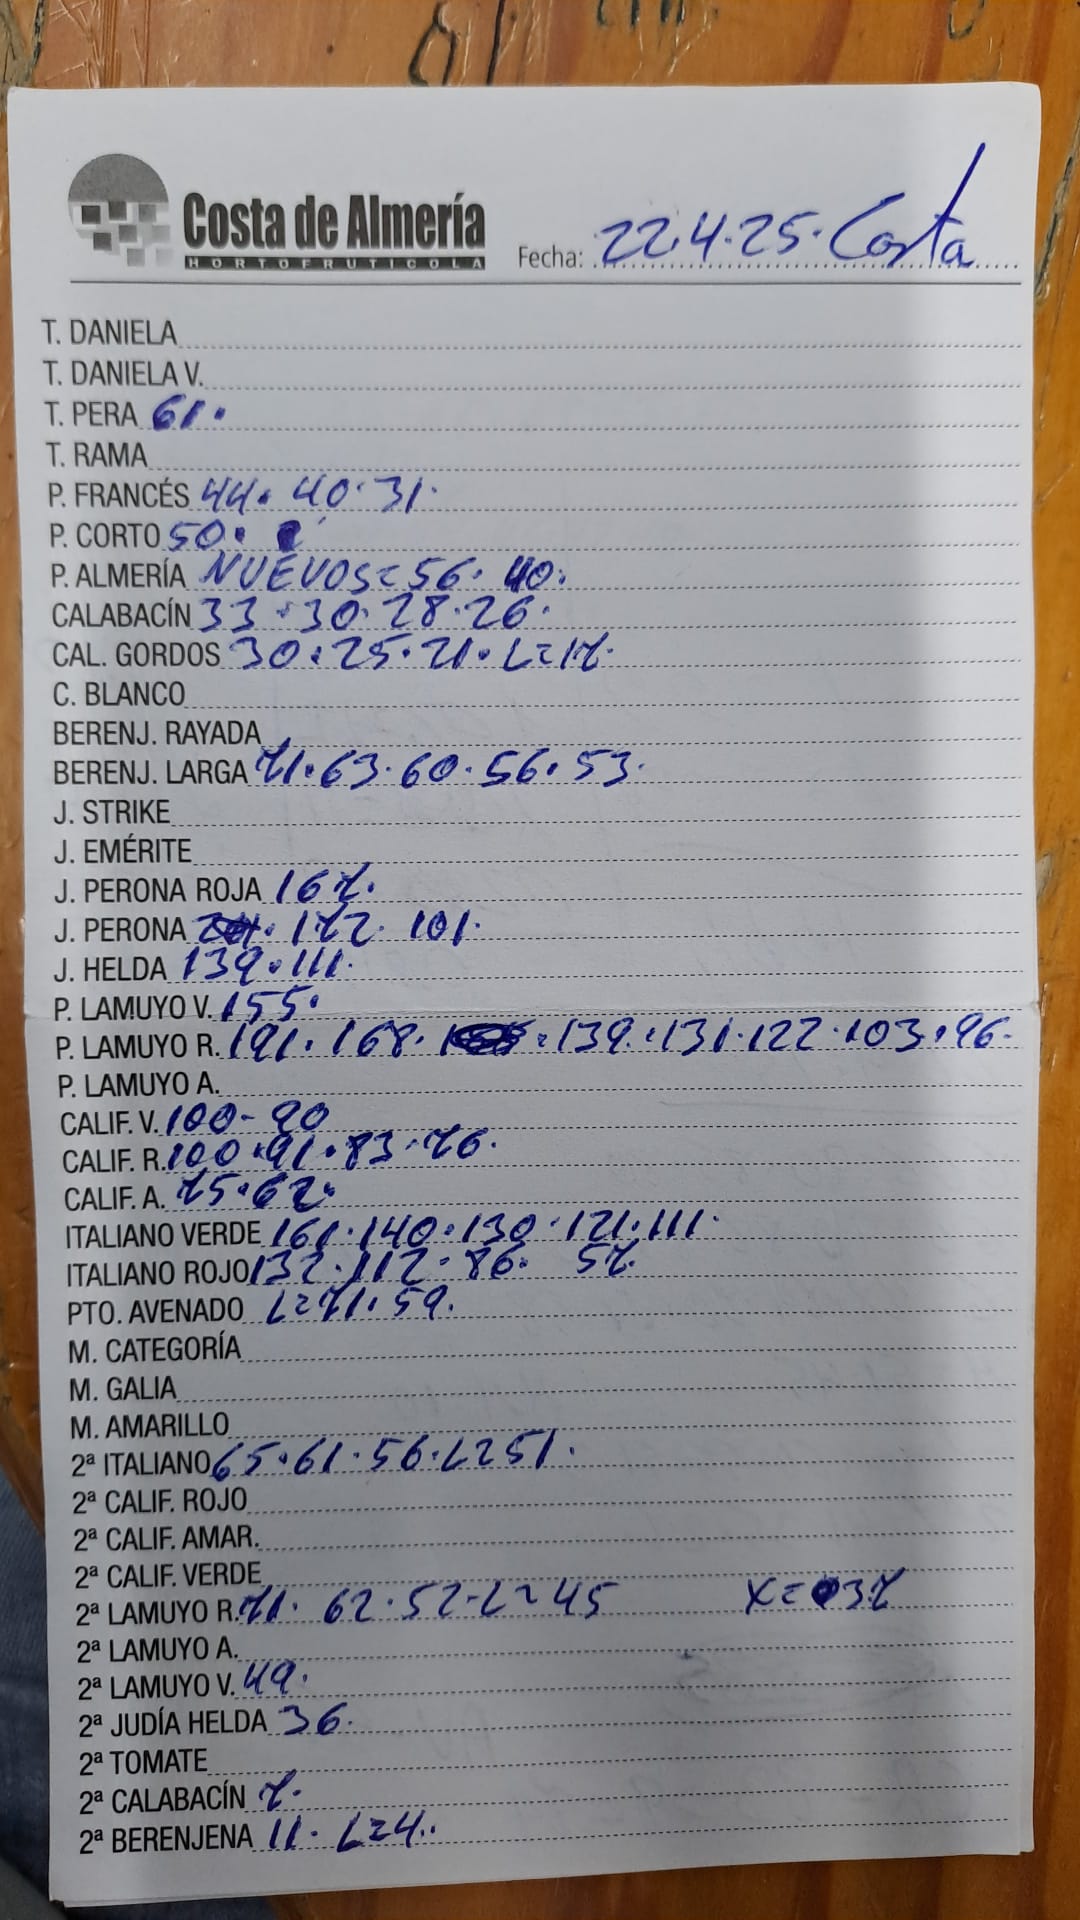 Costa de Almería
HORTOFRUTICOLA
Fecha: 22.4.25. Costa
T. DANIELA
T. DANIELA V.
T. PERA 61.
T. RAMA
P. FRANCÉS 44. 40. 31.
P. CORTO 50.
P. ALMERÍA NUEVOS = 56. 40.
CALABACÍN 33. 30. 28. 26.
CAL. GORDOS 30. 25. 21. L = 17.
C. BLANCO
BERENJ. RAYADA
BERENJ. LARGA 71. 63. 60. 56. 53.
J. STRIKE
J. EMÉRITE
J. PERONA ROJA 167.
J. PERONA 172. 101.
J. HELDA 139. 111.
P. LAMUYO V. 155.
P. LAMUYO R. 191. 168. 139. 131. 122. 103. 96.
P. LAMUYO A.
CALIF. V. 100 - 90
CALIF. R. 100. 91. 83. 76.
CALIF. A. 75. 62.
ITALIANO VERDE 161. 140. 130. 121. 111.
ITALIANO ROJO 132. 112. 86. 57.
PTO. AVENADO L = 71. 59.
M. CATEGORÍA
M. GALIA
M. AMARILLO
2ª ITALIANO 65. 61. 56. L = 51.
2ª CALIF. ROJO
2ª CALIF. AMAR.
2ª CALIF. VERDE
2ª LAMUYO R. 71. 62. 52. L = 45 X = 37
2ª LAMUYO A.
2ª LAMUYO V. 49.
2ª JUDÍA HELDA 36.
2ª TOMATE
2ª CALABACÍN 7.
2ª BERENJENA 11. L = 4.